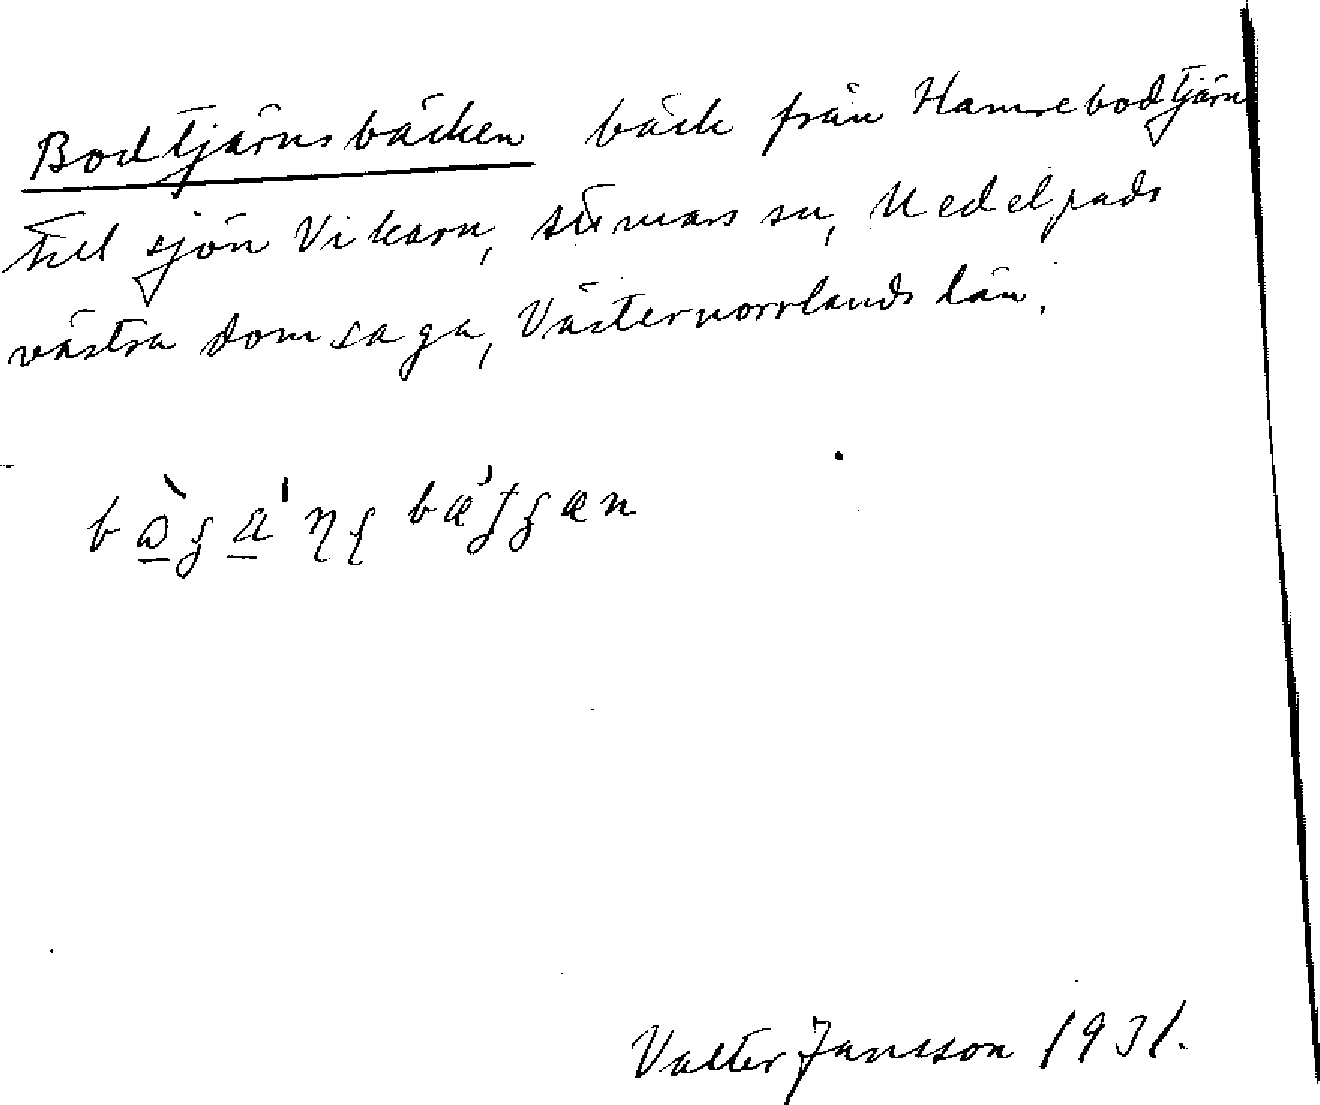 Bodtjärnsbäcken bäck från Hamrebodtjärn
till sjön Vikarn, Stimars sn, Medelpads
västra domsaga, Västernorrlands län.
Valter Jansson 1931.